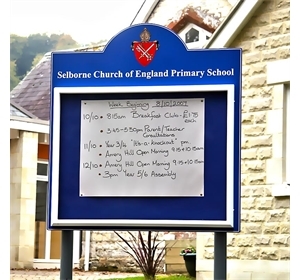 Selborne Church of England Primary School
Week Beginning 8/10/2007
10/10 • 8.15am Breakfast Club - £1.75
each
• 3.45-5.30pm Parent/Teacher
Consultations
11/10 • Year 3/4 pm
• Amery Hill Open Morning 9.15-10.15am
12/10 • Amery Hill Open Morning 9.15-10.15am
• 3pm Year 5/6 Assembly